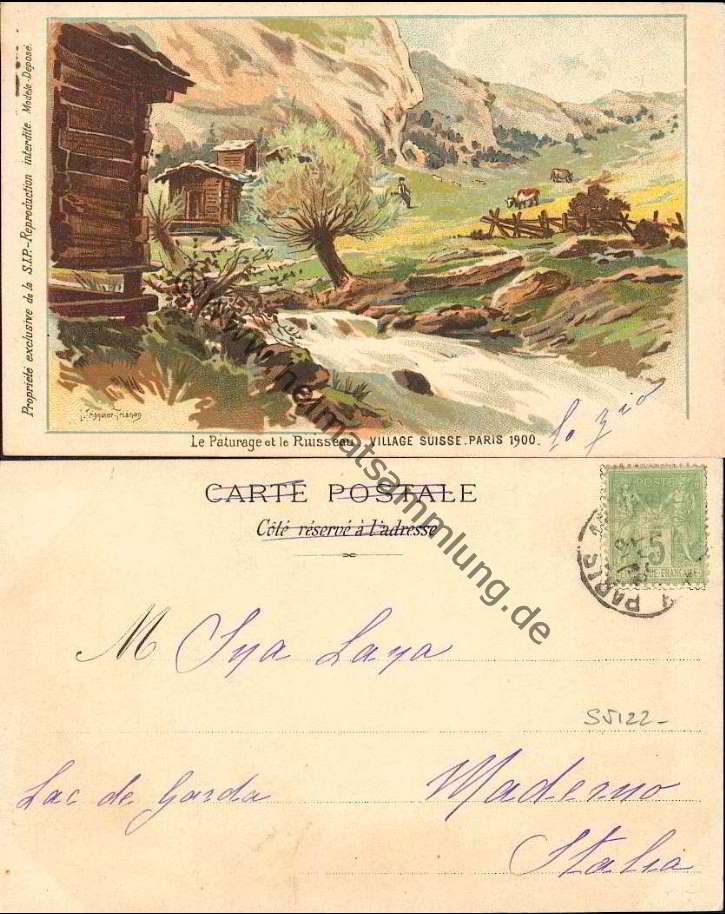 Propriété exclusive de la S.I.P.-Reproduction interdite. Modèle-Déposé.
Le Paturage et le Ruisseau. VILLAGE SUISSE. PARIS 1900.
lo zio
© www.heimatsammlung.de
CARTE POSTALE
Côté réservé à l'adresse
POSTE
5
PARIS
M Sya Laya
SS122-
Lac de Garda Maderno
Italia